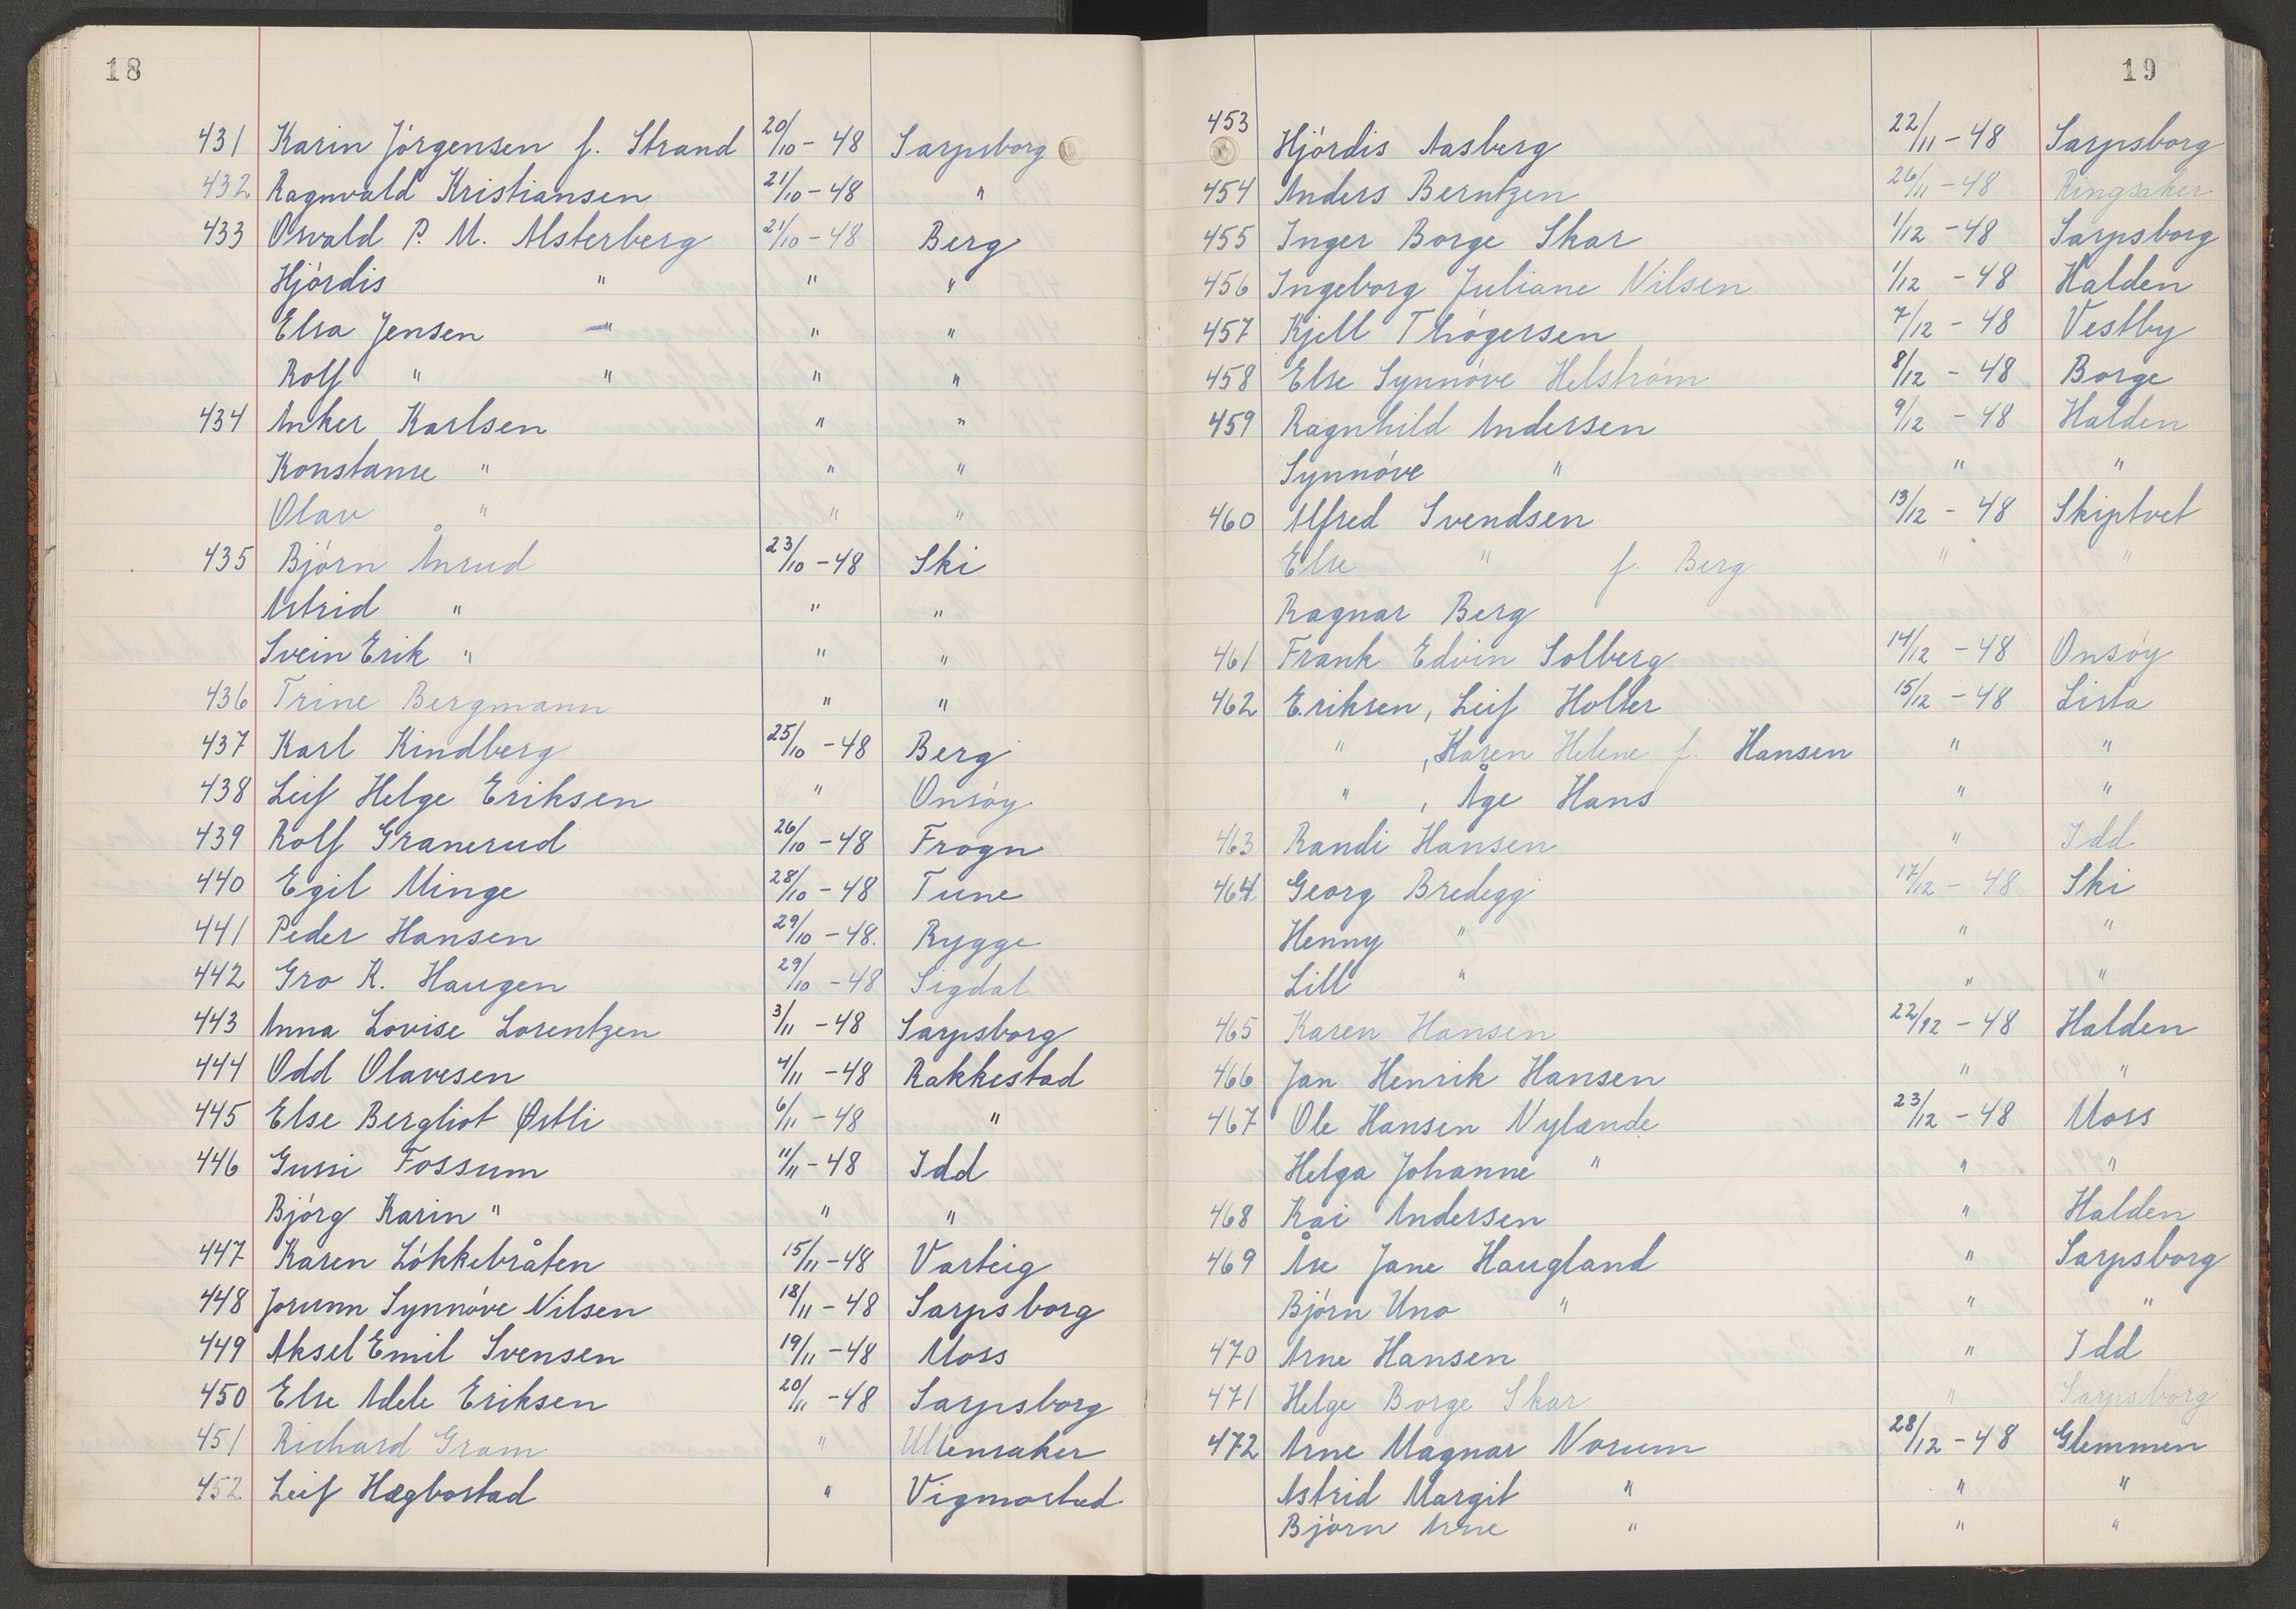 18
431 Karin Jörgensen f. Strand 20/10 - 48 Sarpsborg
432 Ragnvald Kristiansen 21/10 - 48 "
433 Osvald P. M. Alsterberg 21/10 - 48 Berg
Hjördis " " "
Elsa Jensen " " "
Rolf " " " "
434 Anker Karlsen " "
Konstanse " " "
Olav " " "
435 Björn Ånrud 23/10 - 48 Ski
Astrid " " "
Svein Erik " " "
436 Trine Bergmann " "
437 Karl Kindberg 25/10 - 48 Berg
438 Leif Helge Eriksen " Onsöy
439 Rolf Granerud 26/10 - 48 Frogn
440 Egil Minge 28/10 - 48 Tune
441 Peder Hansen 29/10 - 48. Rygge
442 Gro K. Haugen 29/10 - 48 Sigdal
443 Anna Lovise Lorentzen 3/11 - 48 Sarpsborg
444 Odd Olavesen 4/11 - 48 Rakkestad
445 Else Bergliot Østli 6/11 - 48 "
446 Gussi Fossum 11/11 - 48 Idd
Björg Karin " " "
447 Karen Lökkebråten 15/11 - 48 Varteig
448 Jorunn Synnöve Nilsen 18/11 - 48 Sarpsborg
449 Aksel Emil Svensen 19/11 - 48 Moss
450 Else Adele Eriksen 20/11 - 48 Sarpsborg
451 Richard Gram " Ullensaker
452 Leif Hægbostad " Vigmostad
19
453 Hjördis Aasberg 22/11 - 48 Sarpsborg
454 Anders Berntzen 26/11 - 48 Ringsaker
455 Inger Borge Skar 1/12 - 48 Sarpsborg
456 Ingeborg Juliane Nilsen 1/12 - 48 Halden
457 Kjell Thögersen 7/12 - 48 Vestby
458 Else Synnöve Helström 8/12 - 48 Borge
459 Ragnhild Andersen 9/12 - 48 Halden
Synnöve " " "
460 Alfred Svendsen 13/12 - 48 Skiptvet
Else " f. Berg " "
Ragnar Berg
461 Frank Edvin Solberg 14/12 - 48 Onsöy
462 Eriksen, Leif Holter 15/12 - 48 Lista
" , Karen Helene f. Hansen " "
" , Åge Hans " "
463 Randi Hansen " Idd
464 Georg Bredegg 17/12 - 48 Ski
Henny " " "
Lill " " "
465 Karen Hansen 22/12 - 48 Halden
466 Jan Henrik Hansen " "
467 Ole Hansen Nylande 23/12 - 48 Moss
Helga Johanne " " "
468 Kai Andersen " Halden
469 Åse Jane Haugland " Sarpsborg
Björn Uno " " "
470 Arne Hansen " Idd
471 Helge Borge Skar " Sarpsborg
472 Arne Magnar Norum 28/12 - 48 Glemmen
Astrid Margit " " "
Björn Arne " " "